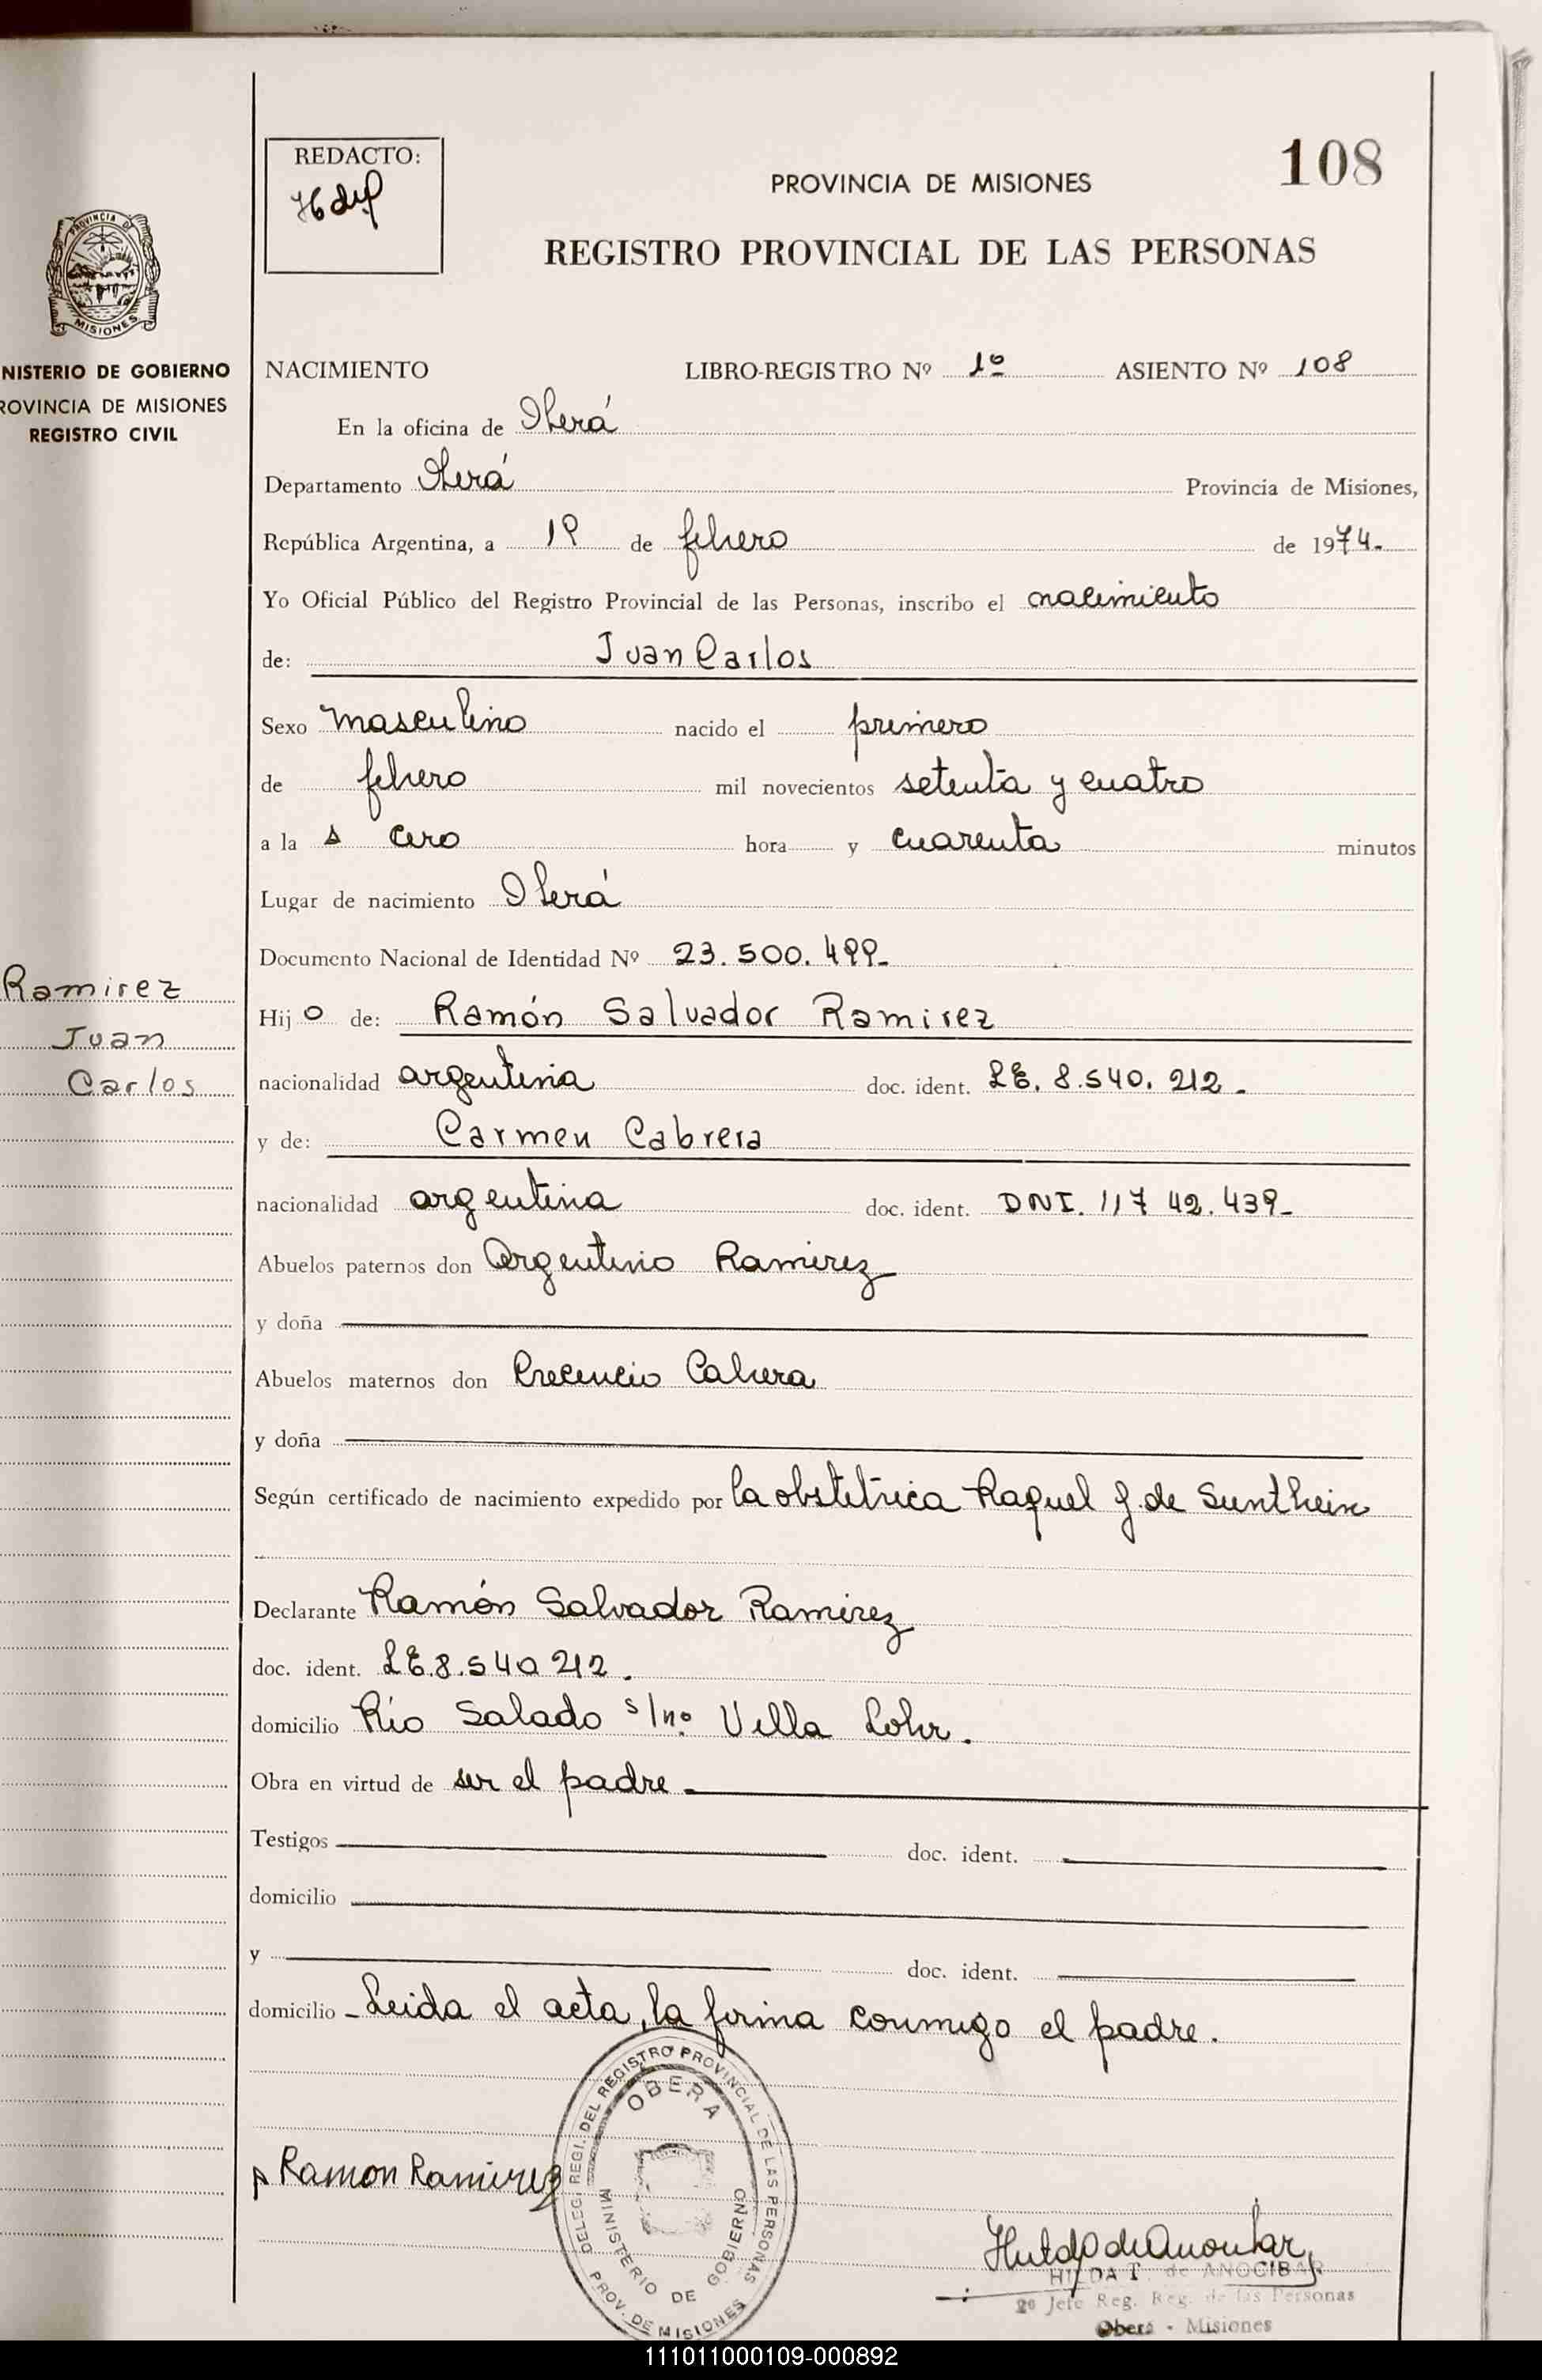 REDACTO:
108
PROVINCIA DE MISIONES
REGISTRO PROVINCIAL DE LAS PERSONAS
PROVINCIA D
MISIONES
NISTERIO DE GOBIERNO
ROVINCIA DE MISIONES
REGISTRO CIVIL
NACIMIENTO LIBRO-REGISTRO Nº 1º ASIENTO Nº 108
En la oficina de Oberá
Departamento Oberá Provincia de Misiones,
República Argentina, a 19 de febrero de 1974.
Yo Oficial Público del Registro Provincial de las Personas, inscribo el nacimiento
de: Juan Carlos
Sexo masculino nacido el primero
de febrero mil novecientos setenta y cuatro
a la s cero hora y cuarenta minutos
Lugar de nacimiento Oberá
Documento Nacional de Identidad Nº 23.500.499-
Ramirez
Juan
Carlos
Hij o de: Ramón Salvador Ramirez
nacionalidad argentina doc. ident. LE. 8.540.212.
y de: Carmen Cabrera
nacionalidad argentina doc. ident. DNI. 117 42.439-
Abuelos paternos don Argentino Ramirez
y doña
Abuelos maternos don Crecencio Cabrera
y doña
Según certificado de nacimiento expedido por la obstetrica Raquel J. de Sunthein
Declarante Ramón Salvador Ramirez
doc. ident. LE.8.540212.
domicilio Río Salado s/nº Villa Lohr.
Obra en virtud de ser el padre
Testigos doc. ident.
domicilio
y doc. ident.
domicilio - Leida el acta, la firma conmigo el padre.
DELEG. REGI. DEL REGISTRO PROVINCIAL DE LAS PERSONAS
OBERA
MINISTERIO DE GOBIERNO
PROV. DE MISIONES
Ramon Ramirez
HILDA T. de ANOCIBAR
2º Jefe Reg. Reg. de las Personas
Oberá - Misiones
111011000109-000892